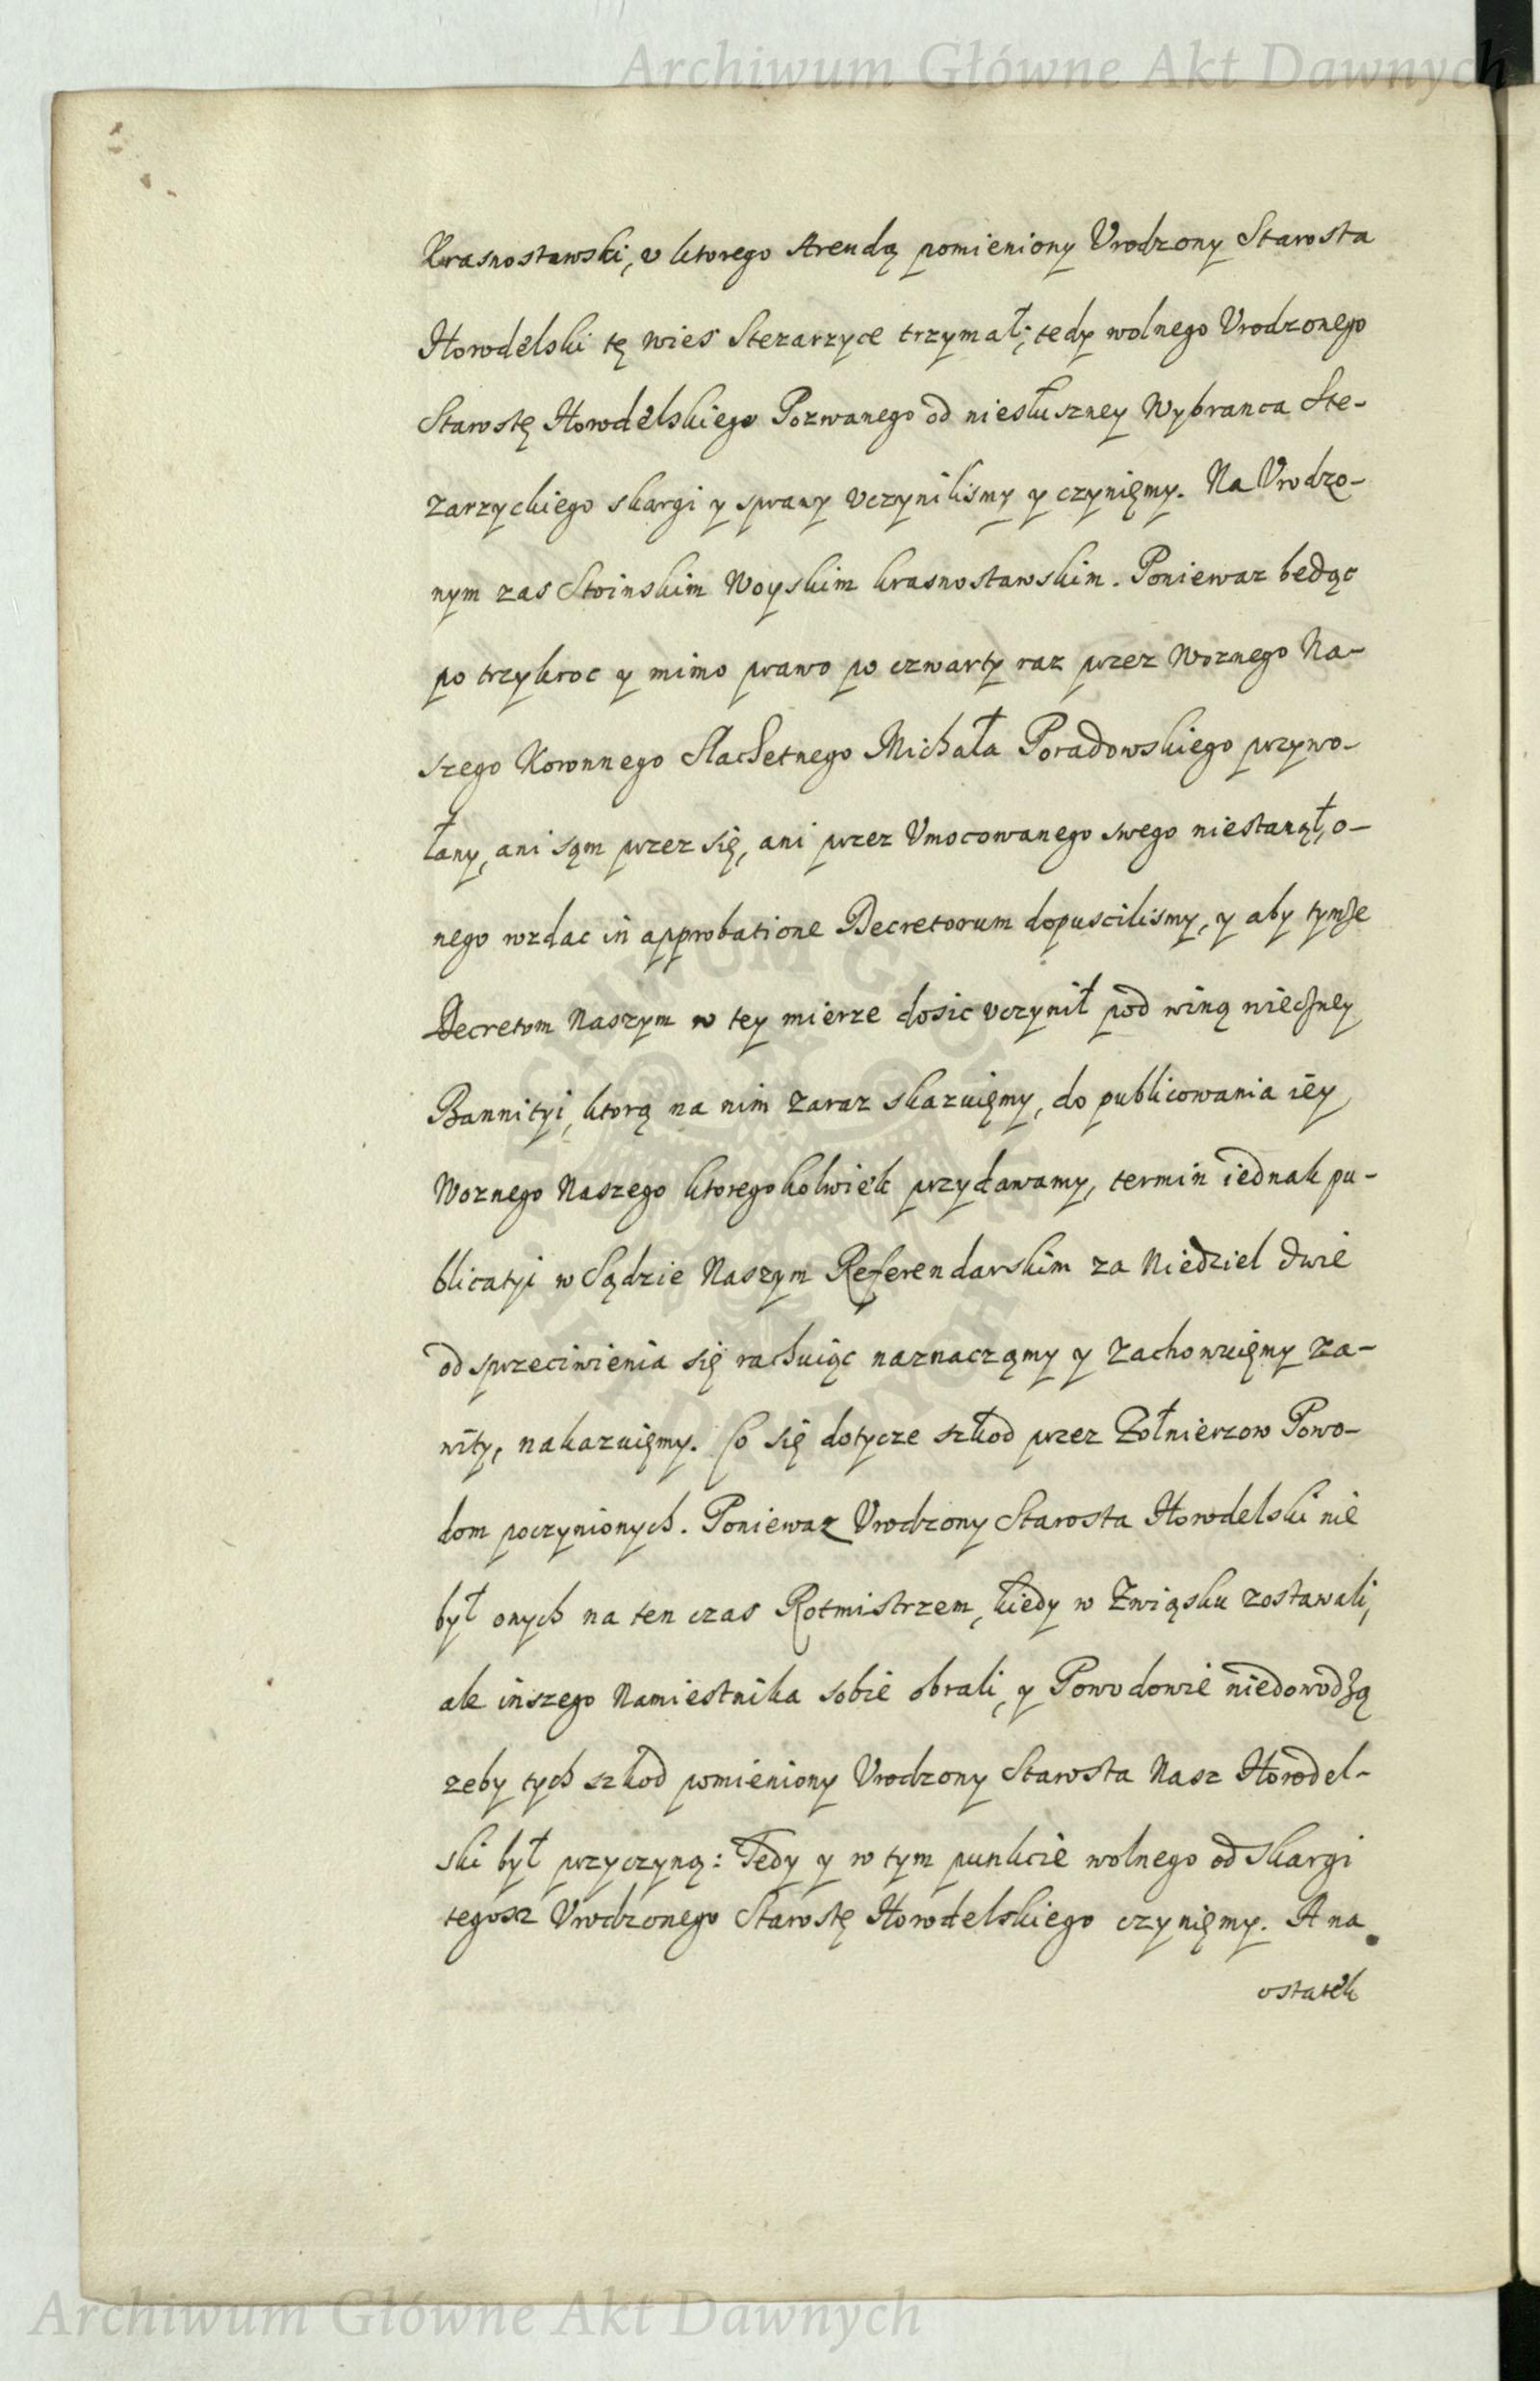 Archiwum Główne Akt Dawnych
Krasnostawski, v ktorego Arendą pomieniony Vrodzony Starosta
Horodelski tę wies Stezarzyce trzymał; tedy wolnego Vrodzonego
Starostę Horodelskiego Pozwanego od niesłuszney Wybranca Ste-
zarzyckiego skargi y sprawy vczynilismy y czynięmy. Na Vrodzo-
nym zas Stoinskim Woyskim krasnostawskim. Poniewaz będąc
po trzykroc y mimo prawo po czwarty raz przez Woznego Na-
szego Koronnego Slachetnego Michała Poradowskiego przywo-
łany, ani sąm przez się, ani przez Vmocowanego swego niestanął, o-
nego wzdac in approbatione Decretorum dopuscilismy, y aby tymże
Decretom Naszym w tey mierze dosic vczynił pod winą wieczney
Bannityi, ktorą na nim zaraz skazuięmy, do publicowania iey
Woznego Naszego ktoregokolwiek przydawamy, termin iednak pu-
blicatyi w Sądzie Naszym Referendarskim za Niedziel dwie
od sprzeciwienia się rachuiąc naznacząmy y zachowuięmy za-
wity, nakazuięmy. Co się dotycze szkod przez Zołnierzow Powo-
dom poczynionych. Poniewaz Vrodzony Starosta Horodelski nie
był onych na ten czas Rotmistrzem, kiedy w Związku zostawali,
ale inszego Namiestnika sobie obrali, y Powodowie niedowodzą
zeby tych szkod pomieniony Vrodzony Starosta Nasz Horodel-
ski był przyczyną: Tedy y w tym punkcie wolnego od skargi
tegosz Vrodzonego Starostę Horodelskiego czynięmy. A na
ostatek
Archiwum Główne Akt Dawnych